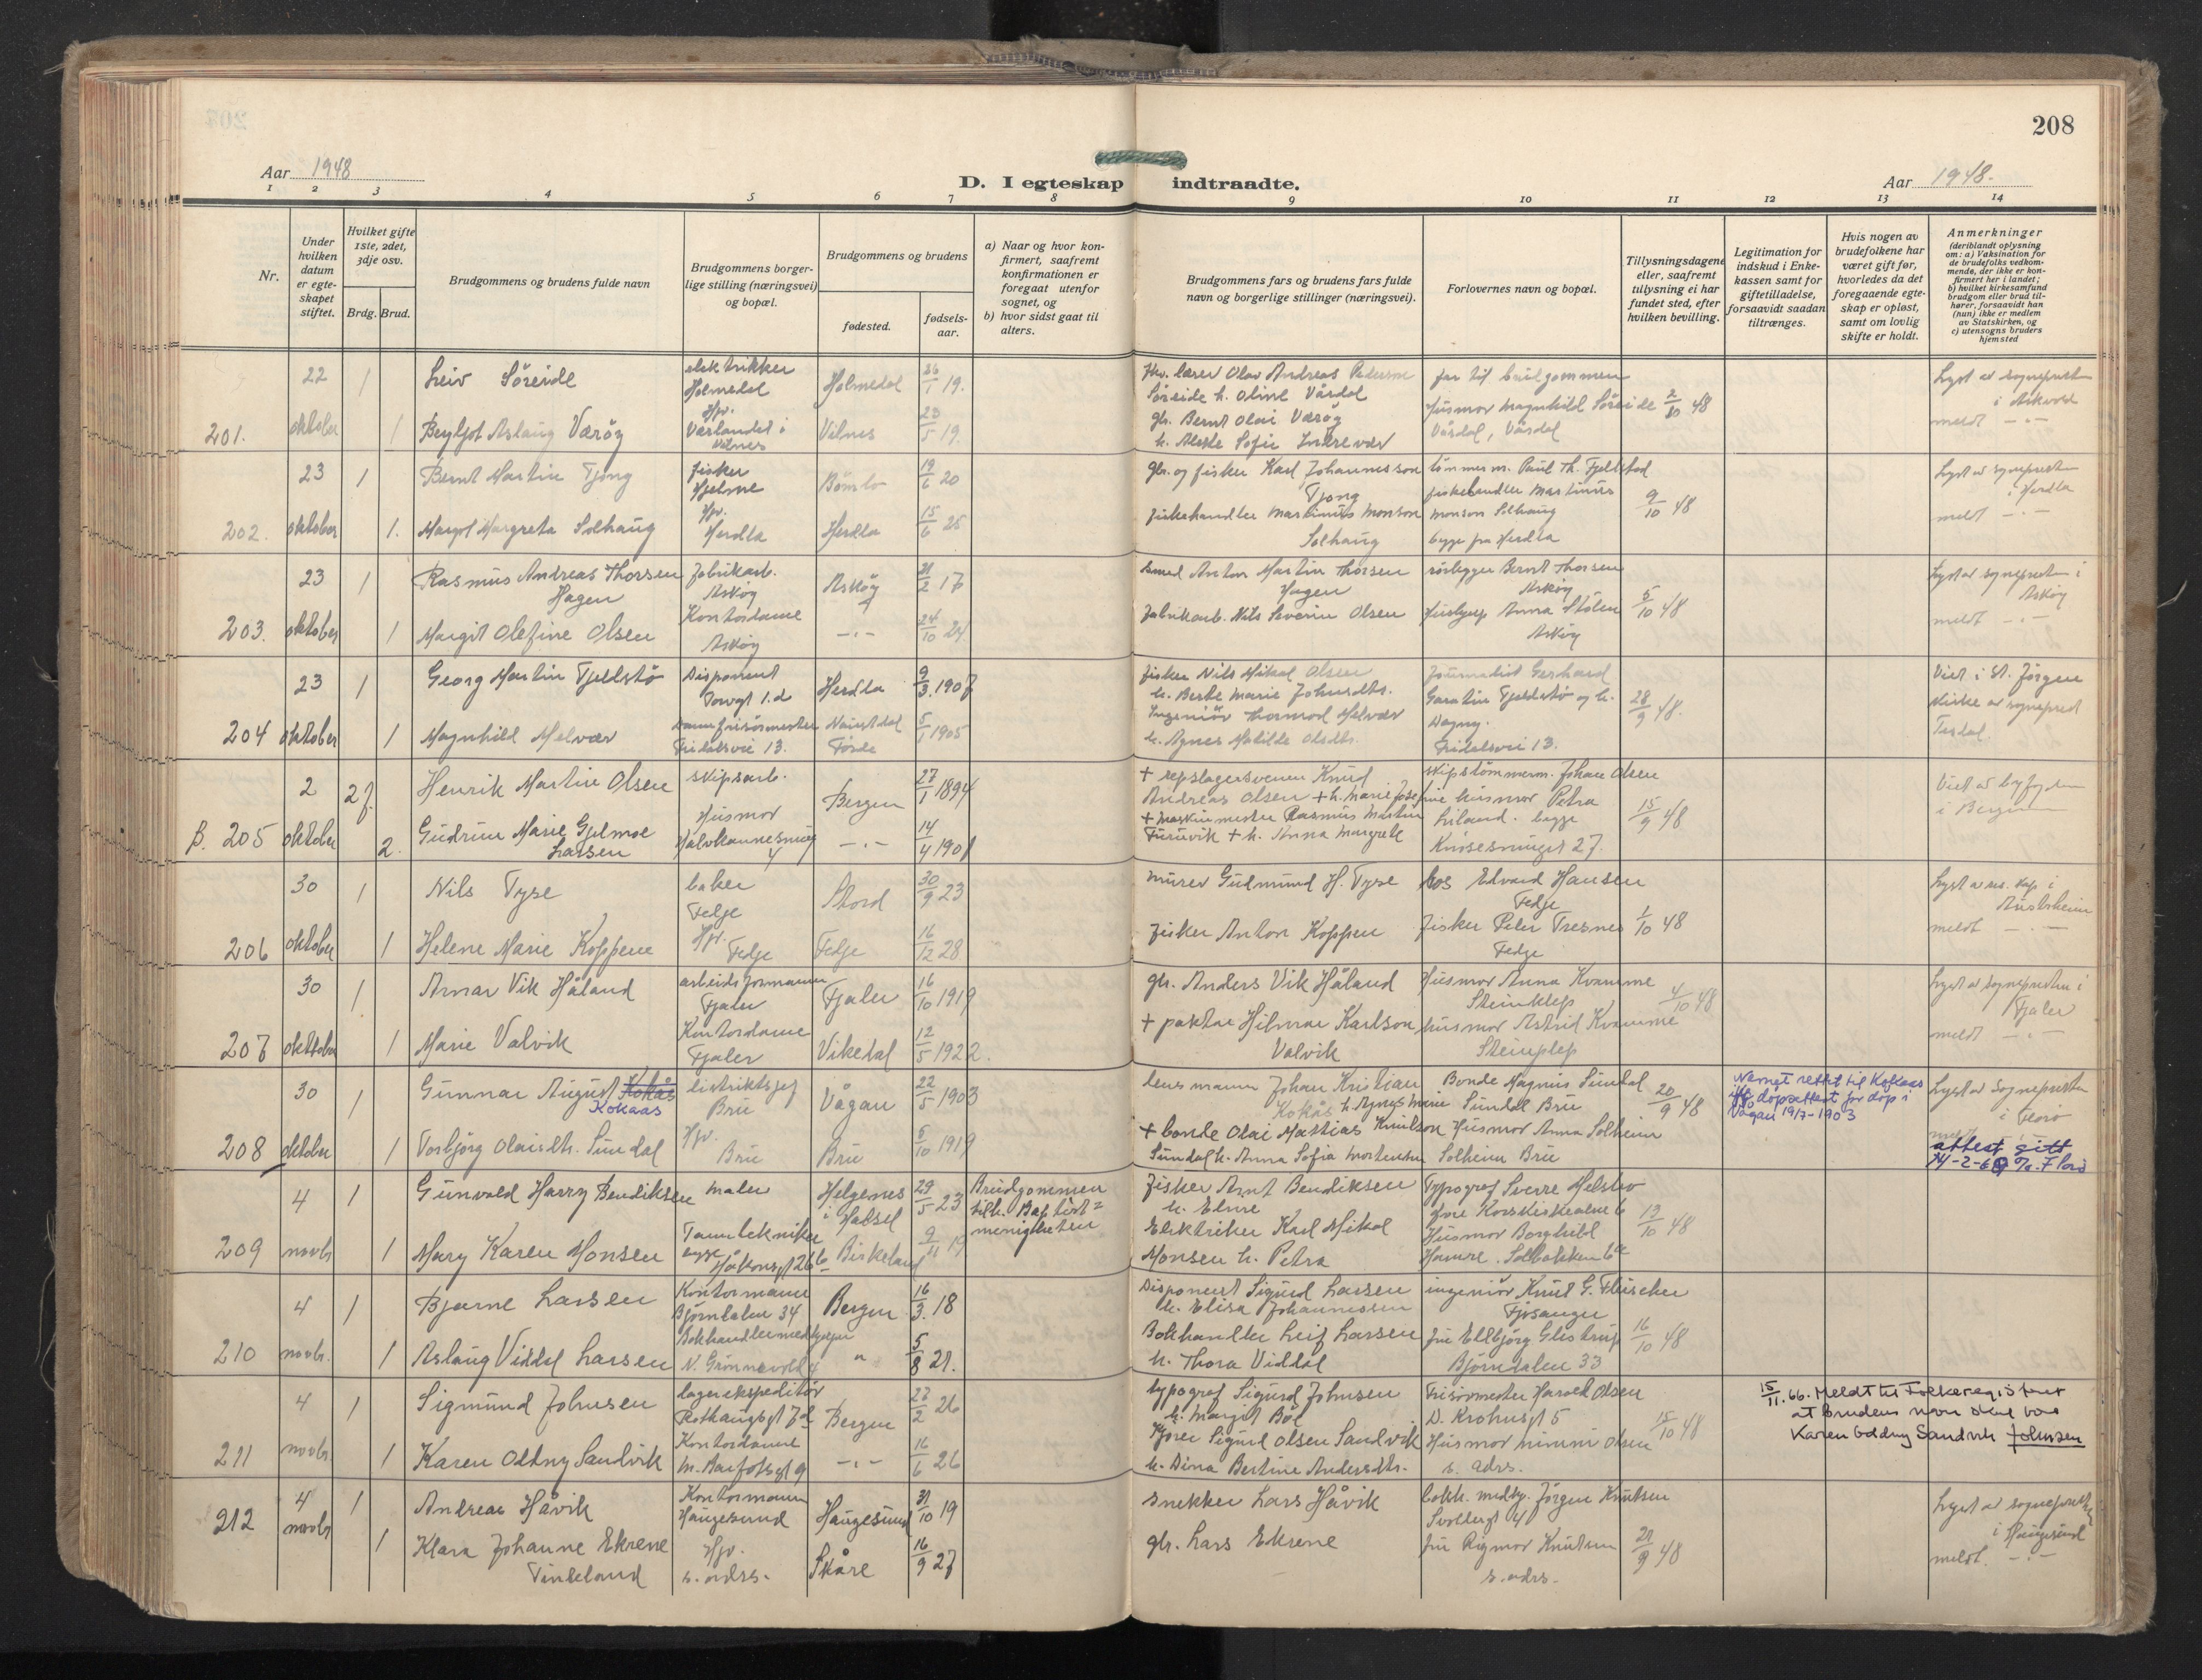 208
Aar 1948
D. I egteskap indtraadte.
Aar 1948.
1 2 3 4 5 6 7 8 9 10 11 12 13 14
Nr.
Under hvilken datum er egteskapet stiftet.
Hvilket gifte 1ste, 2det, 3dje osv.
Brdg. Brud.
Brudgommens og brudens fulde navn
Brudgommens borgerlige stilling (næringsvei) og bopæl.
Brudgommens og brudens
fødested.
fødselsaar.
a) Naar og hvor konfirmert, saafremt konfirmationen er foregaat utenfor sognet, og
b) hvor sidst gaat til alters.
Brudgommens fars og brudens fars fulde navn og borgerlige stillinger (næringsvei).
Forlovernes navn og bopæl.
Tillysningsdagene eller, saafremt tillysning ei har fundet sted, efter hvilken bevilling.
Legitimation for indskud i Enkekassen samt for giftetilladelse, forsaavidt saadan tiltrænges.
Hvis nogen av brudefolkene har været gift før, hvorledes da det foregaaende egteskap er opløst, samt om lovlig skifte er holdt.
Anmerkninger
(deriblandt oplysning om: a) Vaksination for de brudefolks vedkommende, der ikke er konfirmert her i landet;
b) hvilket kirkesamfund brudgom eller brud tilhører, forsaavidt han (hun) ikke er medlem av Statskirken, og
c) utensogns bruders hjemsted
201. 22 oktober 1 Leiv Søreide
elektrikker Holmedal
Holmedal 26/1 19.
lærer Olav Andreas
Søreide h. Oline Vårdal
far til brudgommen
2/10 48
Lyst av sognepresten
i Askvoll
1 Aslaug Værøy
Hjv. Værlandet i Vilnes
Vilnes 23/5 19.
gbr. Bernt Olai Værøy
Sofie
Husmor Magnhild Søreide
Vårdal, Vårdal
meldt -"-
202. 23 oktober 1 Bernt Martin Tjong
fisker Hjelme
Bømlo 19/6 20
gbr. og fisker Karl Johannesson
Tjong
tømmerm. Paul Th. Fjellstad
9/10 48
Lyst av sognepresten
i Herdla
1. Margot Margreta Solhaug
Hjv. Herdla
Herdla 15/6 25
fiskehandler Martinus Monson
Solhaug
fiskehandler Martinus
Monson Solhaug
begge fra Herdla
meldt -"-
203. 23 oktober 1 Rasmus Andreas Thorsen
Hagen
fabrikarb. Askøy
Askøy 21/2 17
smed Anton Martin Thorsen
Hagen
rørlegger Bernt Thorsen
Askøy
5/10 48
Lyst av sognepresten i
Askøy
1 Margit Olefine Olsen
Kontordame
Askøy
-"- 24/10 24
fabrikarb. Nils Severin Olsen
Anna Stølen
Askøy
meldt -"-
204 23 oktober 1 Georg Martin Tjeldstø
Disponent
Torvgt 1.d
Herdla 9/3 1907
fisker Nils Mikal Olsen
h. Berte Marie Johnsdtr.
Journalist Gerhard
Tjeldstø og h.
Dagny.
28/9 48.
Viet i St. Jørgen
kirke av sogneprest
Tesdal.
1 Magnhild Melvær
Damefrisørmester
Fridalsvei 13.
Naustdal
Førde
5/1 1905
Ingeniør Thormod Melvær
h. Agnes Matilde Olsdtr.
Fridalsvei 13.
B. 205 2 oktober 2 f. Henrik Martin Olsen
skipsarb.
Bergen 27/1 1894
+ repslagersvenn Knud
Andreas Olsen + h. Marie Josefine
skipstømmerm. Johan Olsen
husmor Petra
15/9 48
Viet av byfogden
i Bergen
2. Gudrun Marie Gjelmoe
Larsen
Husmor
4
-"- 14/4 1901
+ maskinmester Rasmus Martin
Furuvik + h. Anna Margrete
Liland. begge
Knøsesmuget 27.
206 30 oktober 1 Nils Tyse
baker Fedje
Stord 30/9 23
murer Gudmund H. Tyse
Edvard Hansen
Fedje
1/10 48
Lyst av res. kap i
Austrheim
1 Helene Marie Koppene
Hjv. Fedje
Fedje 16/12 28
fisker Anton Koppen
fisker Peter Tresnes
Fedje
meldt -"-
207 30 oktober 1 Arnar Vik Håland
arbeidsformann
Fjaler
Fjaler 16/10 1919
gbr. Anders Vik Håland
Husmor Anna Kvamme
4/10 48
Lyst av sognepresten i
Fjaler
1 Marie Valvik
Kontordame
Fjaler
Vikedal 12/5 1922.
+ Hilmar Karlson
Valvik
husmor Astrid Kvamme
meldt -"-
208 30 oktober 1 Gunnar August Kokås
Kokaas
distriktsjef
Bru
Vågan 22/5 1903
lensmann Johan Kristian
Kokås h. Agnes Marie
Bonde Magnus Sundal
Sundal Bru
20/9 48
Navnet rettet til Kokaas
iflg. dåpsattest for dåp i
Vågan 19/7-1903
Lyst av sognepresten
i Florø
1 Torbjørg Olaisdtr. Sundal
Hjv. Bru
Bru 5/10 1919
+ bonde Olai Mattias Knutson
Sundal h. Anna Sofia Mortensen
Husmor Anna Solheim
Solheim Bru
attest gitt
14-2-69 Florø
209 4 novbr. 1 Gunvald Harry Bendiksen
maler
Helgenes
i Hadsel
29/5 23
Brudgommen
tilh. Baptist=
menigheten
fisker Arnt Bendiksen
h. Elvire
Typograf Sverre Melstev
13/10 48
1 Mary Karen Monsen
Tanntekniker
begge Håkonsgt 26 b
Birkeland 9/11 19
Elektriker Karl Mikal
Monsen h. Petra
Husmor Borghild
Hamre. Solbakken 6a
210 4 novbr. 1 Bjarne Larsen
Kontormann
Bjørndalen 34
Bergen 16/3 18
Disponent Sigurd Larsen
h. Elisa Johannessen
ingeniør Knut G. Fleischer
Fjøsanger
16/10 48
1 Aslaug Viddal Larsen
Bokhandlermedhjelper
" 5/8 21.
Bokhandler Leif Larsen
h. Thora Viddal
fru Ellbjørg Glistrup
Bjørndalen 33
211 4 novbr. 1 Sigmund Johnsen
lagerekspeditør
Rothaugsgt 7d
Bergen 27/2 26
typograf Sigurd Johnsen
h. Margit Bøe
Frisørmester Harald Olsen
D. Krohnsgt 5
15/10 48
15/11. 66. Meldt til Folkeregisteret
at brudens navn skal være
Karen Oddny Sandvik Johnsen
1 Karen Oddny Sandvik
Kontordame
-"- 16/6 26
Kjører Sigurd Olsen Sandvik
h. Dina Bertine Andersdtr.
Husmor Mimmi Olsen
s. adrs.
212 4 novbr 1 Andreas Håvik
Kontormann
Haugesund
Haugesund 31/10 19
snekker Lars Håvik
bokh. medhj. Jørgen Knutsen
21/9 48
Lyst av sognepresten
i Haugesund
1 Klara Johanne Ekrene
Vindeland
Hjv.
s. adrs.
Skåre 16/9 27
gbr. Lars Ekrene
fru Rigmor Knutsen
s. adrs.
meldt. -"-